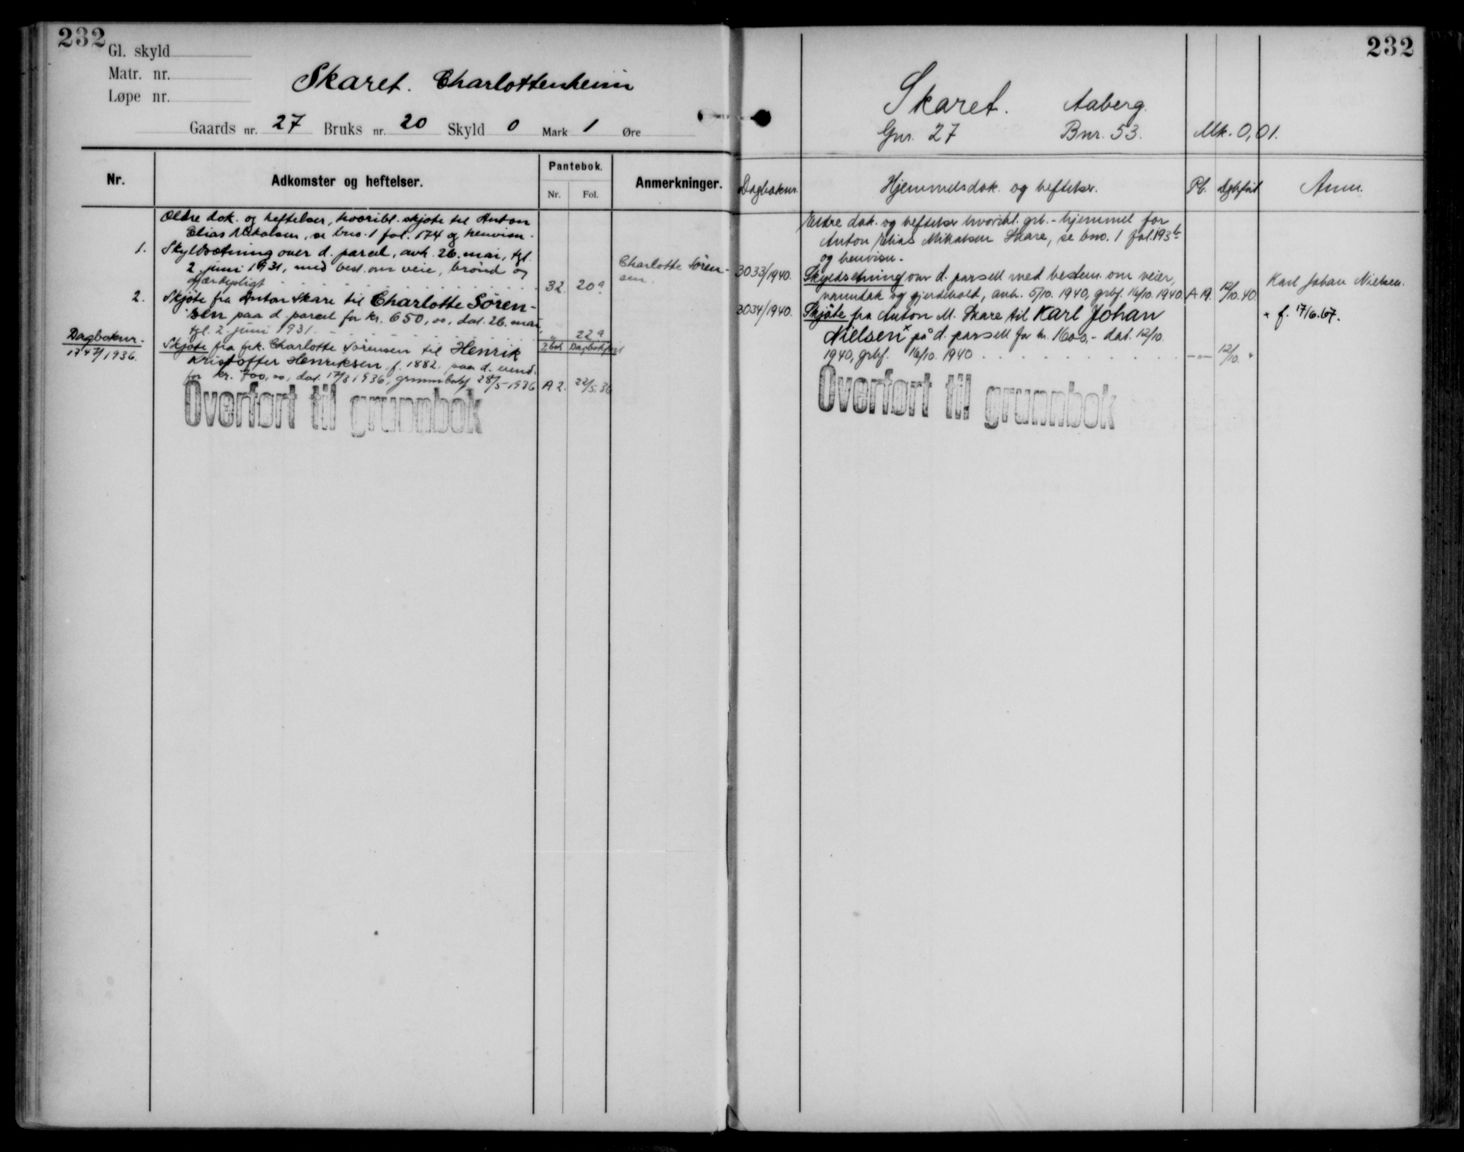 232
Gl. skyld
Matr. nr.
Løpe nr.
Skaret. Charlottenheim
Gaards nr. 27 Bruks nr. 20 Skyld 0 Mark 1 Øre
Nr.
Adkomster og heftelser.
Pantebok.
Nr. Fol.
Anmerkninger.
Ældre dok. og heftelser, hvoribl. skjøte til Anton
Elias Mikalsen, se bno. 1 fol. 174 og henvisn.
1. Skyldsætning over d. parcel, avh. 26. mai, tgl.
2. juni 1931, med best. om veie, brønd og
gjærdepligt 32. 20a
Charlotte Sören-
sen.
2. Skjøte fra Anton Skare til Charlotte Sören-
sen paa d. parcel for kr. 650,00, dat. 26. mai,
tgl. 2. juni 1931. " 22a
Dagboknr. Skjøte fra frk. Charlotte Sørensen til Henrik
1936. Kristoffer Henriksen f. 1882, paa d. eiend.
for kr. 700,00, dat. 1936, grunnbokf. 28/5-1936 A 2. 22/5.36
Overført til grunnbok
232
Skaret. Aaberg.
Gnr. 27 Bnr. 53. Mk. 0,01.
Dagboknr. Hjemmelsdok. og heftelser. Pb. Dgbført Anm.
Eldre dok. og heftelser hvoribl. grb.-hjemmel for
Anton Elias Mikalsen Skare, se bno. 1 fol. 193b
og henvisn.
3033/1940. Skyldsetning over d. parsell med bestem. om veier,
vanntak og gjerdehold, avh. 5/10. 1940, grbf. 16/10 1940 A 19. 12/10.40
Karl Johan Nielsen.
3034/1940. Skjøte fra Anton M. Skare til Karl Johan
x f. 17/6.67.
Nielsen x på d. parsell for kr. 1600,- dat. 12/10.
1940, grbf. 16/10. 1940 — " — 12/10. "
Overført til grunnbok